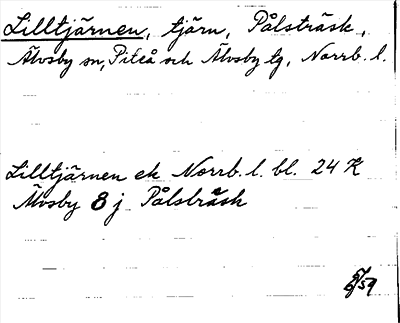 Lilltjärnen, tjärn, Pålsträsk,
Älvsby sn, Piteå och Älvsby tg, Norrb. l.
Lilltjärnen ek Norrb. l. bl. 24 K
Älvsby 8 j Pålsträsk